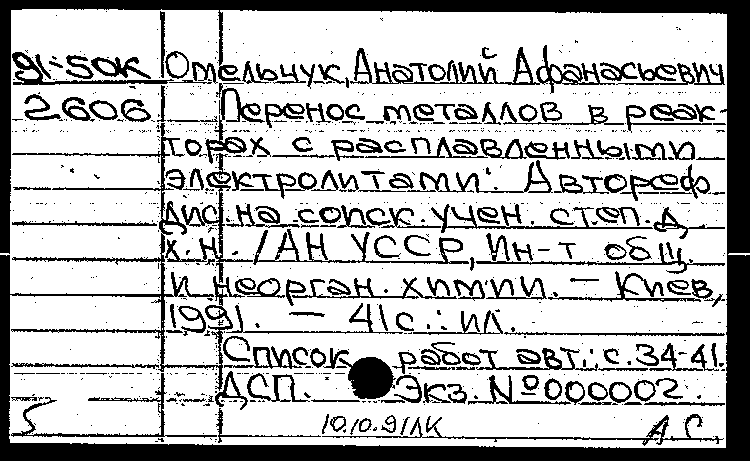 91-50К Омельчук, Анатолий Афанасьевич
2606 Перенос металлов в реак-
торах с расплавленными
электролитами: Автореф.
дис. на соиск. учен. степ. д.
х.н. /АН УССР, Ин-т общ.
и неорган. химии. — Киев,
1991. — 41с.: ил.
Список работ авт.: с.34-41.
ДСП. Экз. №000002.
5 10.10.91ЛК А.С.